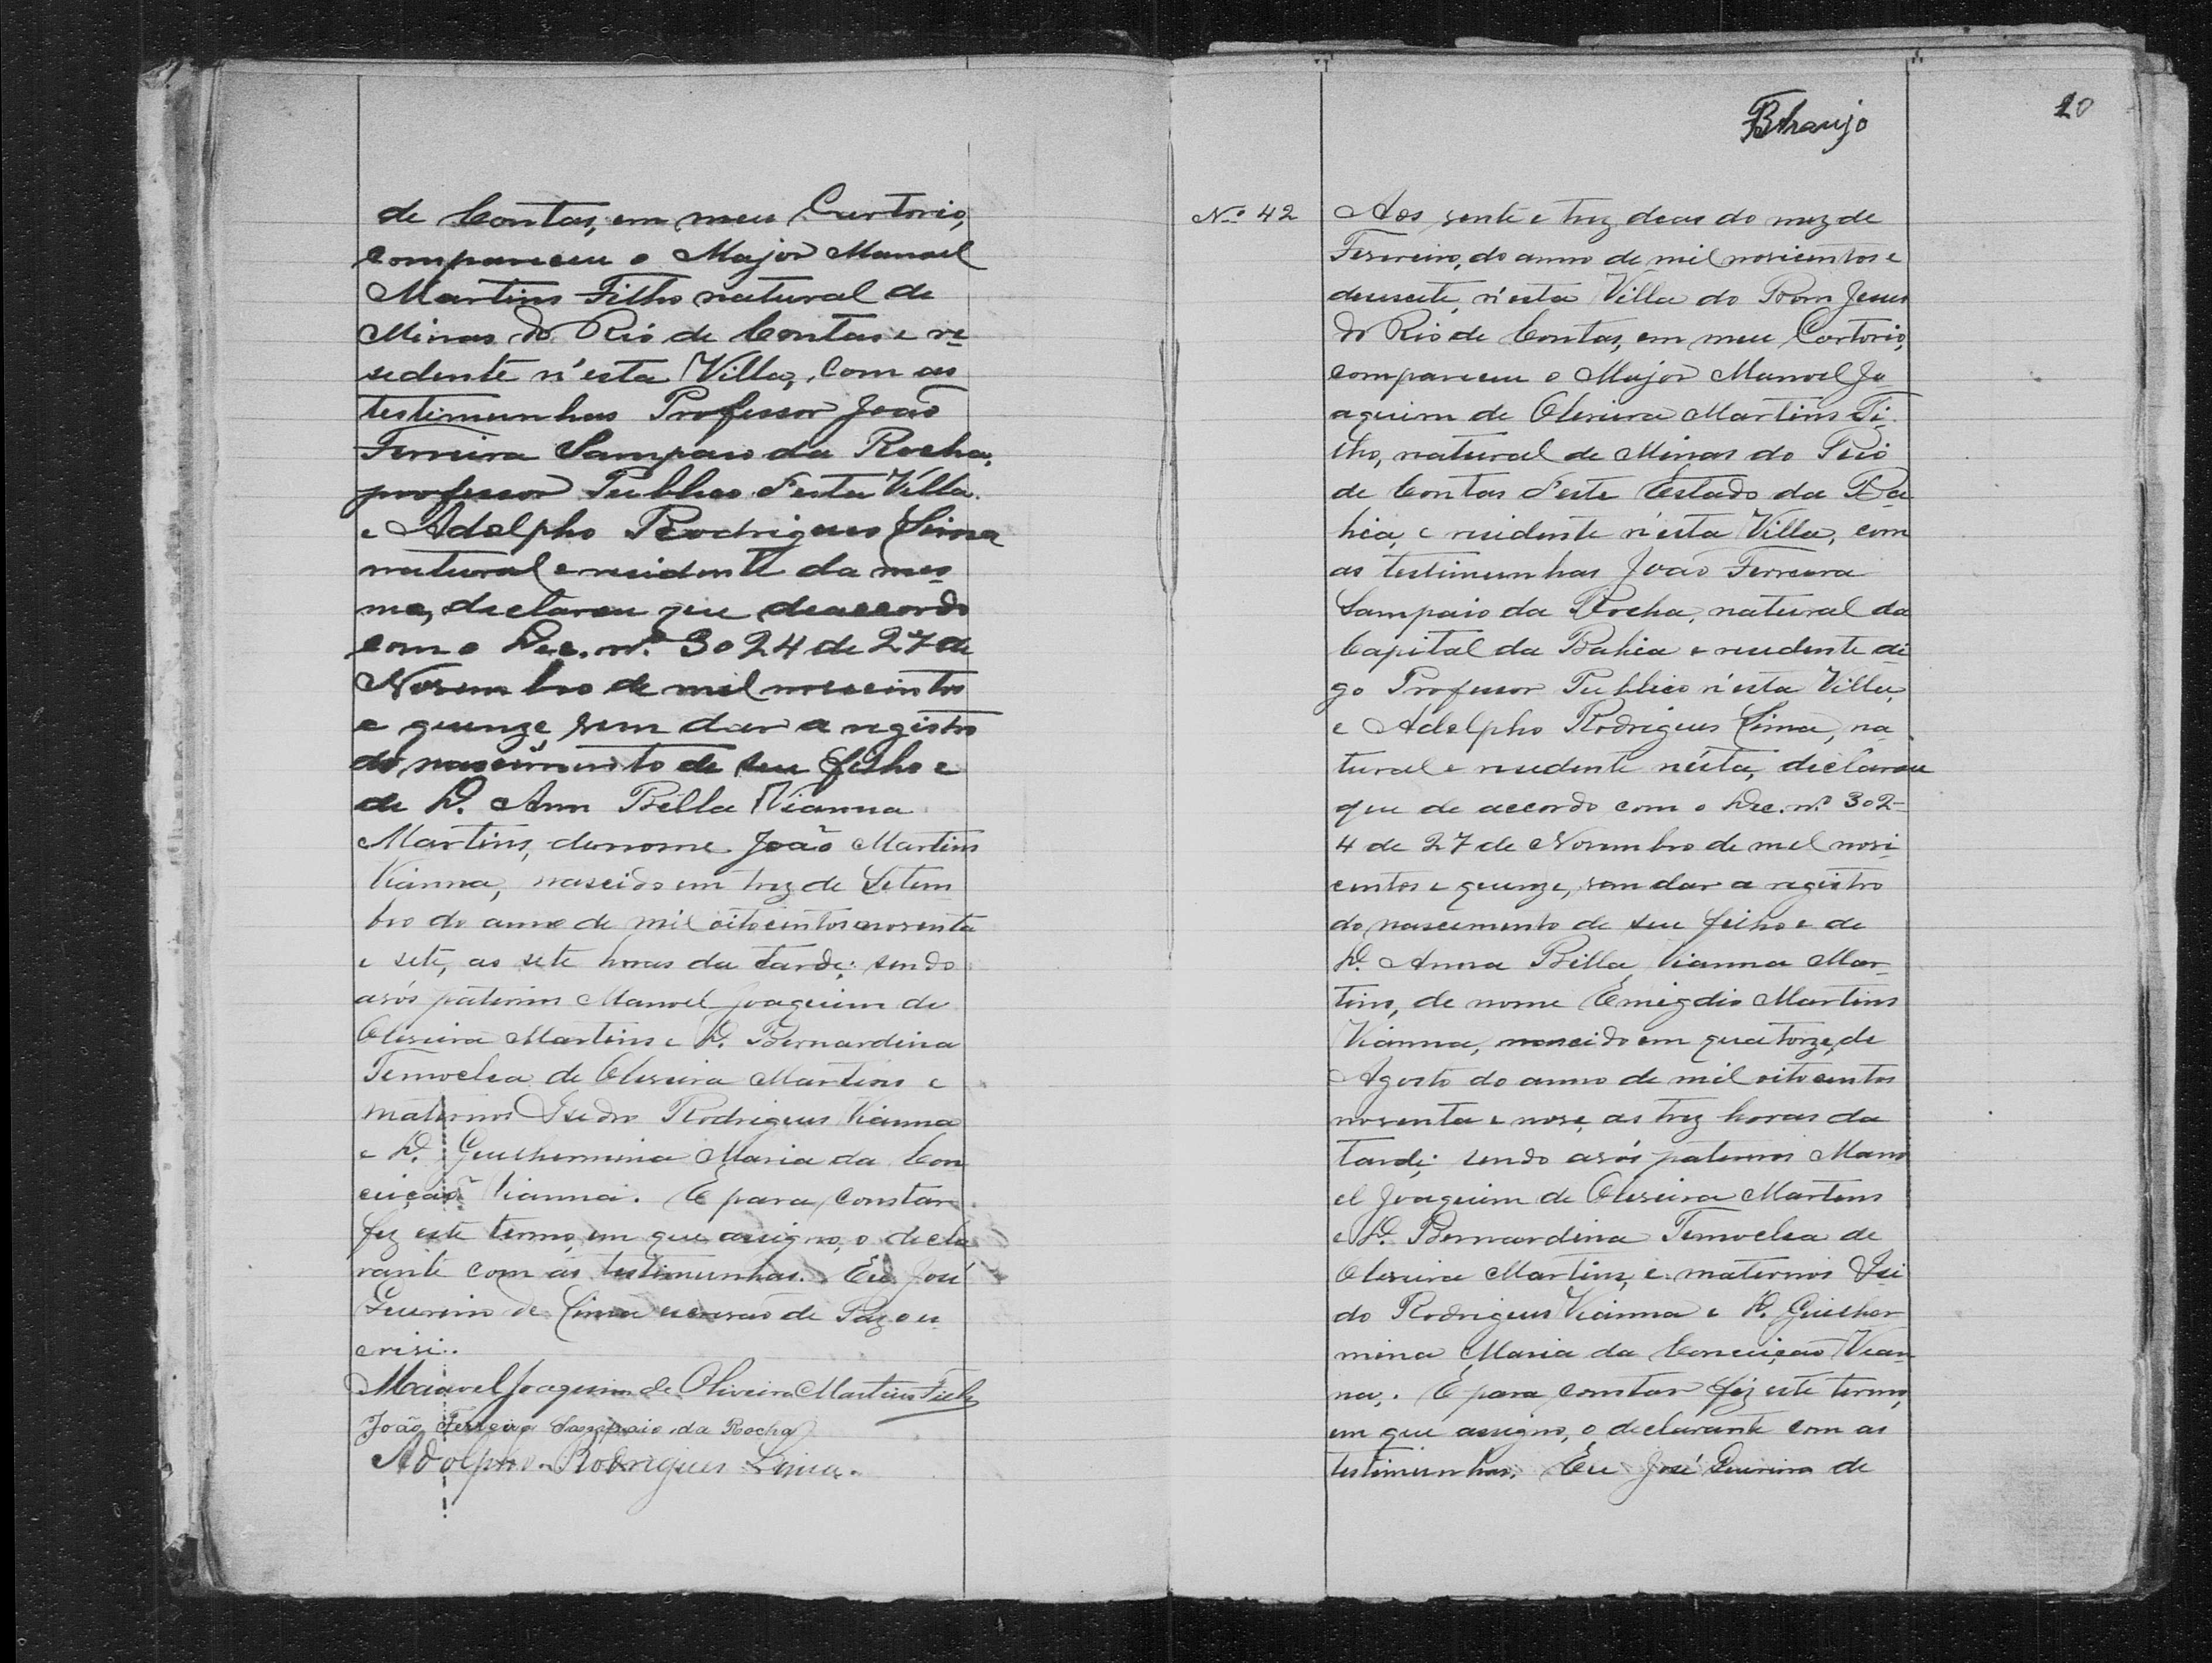 de Contas, em meu Curtorio,
compareceu o Major Manoel
Martins Filho natural de
Minas do Rio de Contas e re
sedente n'esta Villa, com as
testimunhas Professor João
Ferreira Sampaio da Rocha,
professor Publico d'esta Villa
e Adolpho Rodrigues Lima
natural e residente da mes
ma, declarou que deaccordo
com o Dec. nº 3024 de 27 de
Novembro de mil novecentos
e quinze, vem dar a registro
do nascimento de seu filho e
de D. Ann Bella Vianna
Martins, denome João Martins
Vianna, nascido em trez de Setem
bro do anno de mil oitocentos noventa
e sete, as sete horas da tarde; sendo
avós paternos Manoel Joaquim de
Oliveira Martins e D. Bernardina
Temoclea de Oliveira Martins e
maternos Isidro Rodrigues Vianna
e D. Guilhermina Maria da Con
ceição Vianna. E para constar
fez este termo, em que assigno, o decla
rante com as testimunhas. Eu José
de Lima escrivão de Paz o es
crevi.
Manoel Joaquim de Oliveira Martins Filho
João Ferreira Sampaio da Rocha
Adolpho Rodrigues Lima.
BAraujo
20
Nº 42
Aos vente e trez deas do mez de
Fevereiro, do anno de mil novicentos e
desesete, n'esta Villa do Bom Jesus
do Rio de Contas, em meu Cartorio,
compareceu o Major Manoel Jo
aquim de Oliveira Martins Fi
lho, natural de Minas do Rio
de Contas d'este Estado da Ba
hia, e residente n'esta Villa, com
as testimunhas João Ferreira
Sampaio da Rocha, natural da
Capital da Bahia e residente di
go Professor Publico n'esta Villa,
e Adolpho Rodrigues Lima, na
tural e residente n'esta, declarou
que de accordo com o Dec. nº 302-
4 de 27 de Novembro de mil novi
centos e quinze, vem dar a registro
do nascemento de seu filho e de
D. Anna Bella Vianna Mar
tins, de nome Emigdio Martins
Vianna, nascido em quatorze de
Agosto do anno de mil oitocentos
noventa e nove, as trez horas da
tarde; sendo avós paternos Mano
el Joaquim de Oliveira Martins
e D. Bernardina Temoclea de
Oliveira Martins, e maternos Isi
do Rodrigues Vianna e D. Guilher
mina Maria da Conceição Vian
na. E para constar fez este termo,
em que assigno, o declarante com as
testimunhas. Eu José de